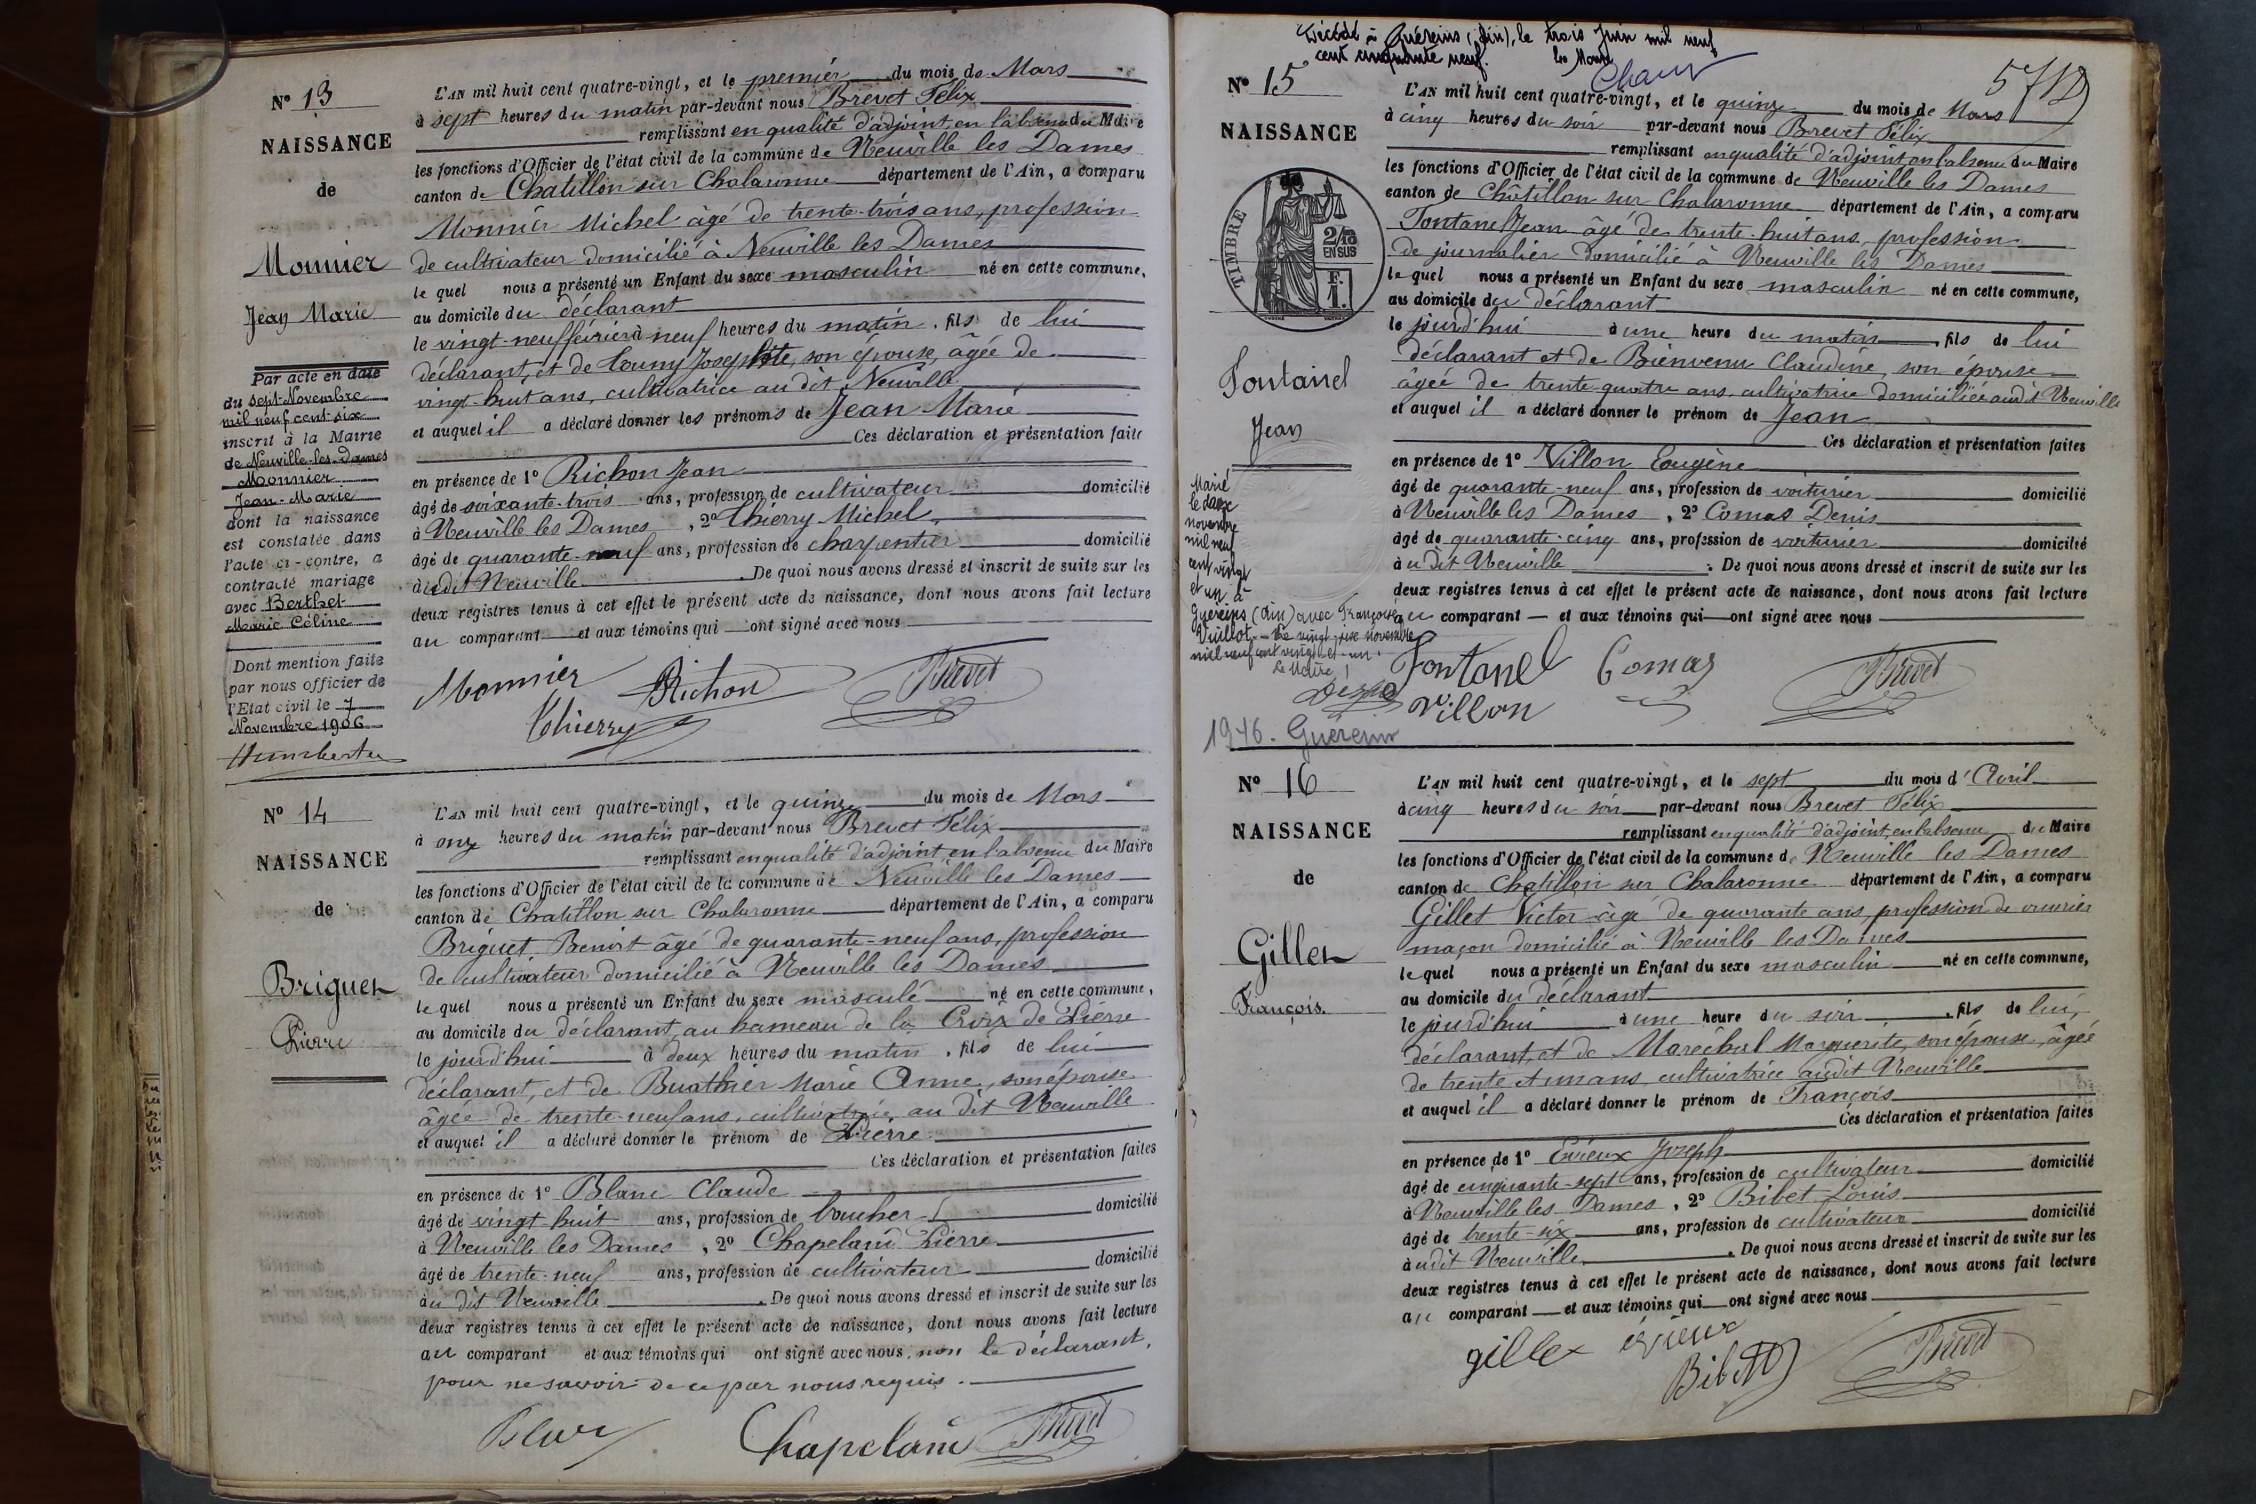 N° 13
NAISSANCE
de
Monnier
Jean Marie
Par acte en date
du sept Novembre
mil neuf cent six
inscrit à la Mairie
de Neuville-les-Dames
Monnier
Jean-Marie
dont la naissance
est constatée dans
l'acte ci-contre, a
contracté mariage
avec Berthet
Marie Céline
Dont mention faite
par nous officier de
l'Etat civil le 7
Novembre 1906
L'AN mil huit cent quatre-vingt, et le premier du mois de Mars
à sept heures du matin par-devant nous Brevet Félix
remplissant en qualité d'adjoint, en l'absence du Maire
les fonctions d'Officier de l'état civil de la commune de Neuville les Dames
canton de Chatillon sur Chalaronne département de l'Ain, a comparu
Monnier Michel âgé de trente-trois ans, profession
de cultivateur domicilié à Neuville les Dames
le quel nous a présenté un Enfant du sexe masculin né en cette commune,
au domicile du déclarant
le vingt-neuf février à neuf heures du matin, fils de lui
déclarant, et de Josephte, son épouse, âgée de
vingt-huit ans, cultivatrice au dit Neuville
et auquel il a déclaré donner les prénoms de Jean Marie
Ces déclaration et présentation faite
en présence de 1° Richon Jean
âgé de soixante-trois ans, profession de cultivateur domicilié
à Neuville les Dames, 2° Thierry Michel,
âgé de quarante-neuf ans, profession de charpentier domicilié
audit Neuville. De quoi nous avons dressé et inscrit de suite sur les
deux registres tenus à cet effet le présent acte de naissance, dont nous avons fait lecture
au comparant et aux témoins qui ont signé avec nous
Monnier Richon Brevet
Thierry
N° 14
NAISSANCE
de
Briguet
Pierre
L'AN mil huit cent quatre-vingt, et le quinze du mois de Mars
à onze heures du matin par-devant nous Brevet Félix
remplissant en qualité d'adjoint, en l'absence du Maire
les fonctions d'Officier de l'état civil de la commune de Neuville les Dames
canton de Chatillon sur Chalaronne département de l'Ain, a comparu
Briguet Benoit âgé de quarante-neuf ans, profession
de cultivateur domicilié à Neuville les Dames
le quel nous a présenté un Enfant du sexe masculé né en cette commune,
au domicile du déclarant, au hameau de la Croix de Pierre
le jourd'hui à deux heures du matin, fils de lui
déclarant, et de Buathier Marie Anne, son épouse
âgée de trente-neuf ans, cultivatrice, au dit Neuville
et auquel il a déclaré donner le prénom de Pierre
Ces déclaration et présentation faites
en présence de 1° Blanc Claude
âgé de vingt huit ans, profession de boucher domicilié
à Neuville les Dames, 2° Chapelain Pierre
âgé de trente-neuf ans, profession de cultivateur domicilié
au dit Neuville. De quoi nous avons dressé et inscrit de suite sur les
deux registres tenus à cet effet le présent acte de naissance, dont nous avons fait lecture
au comparant et aux témoins qui ont signé avec nous, non le déclarant,
pour ne savoir de ce par nous requis.
Blanc Chapelain Brevet
Décédé à Guéreins (Ain), le trois Juin mil neuf
cent cinquante neuf. Le Maire
571
N° 15
NAISSANCE
de
TIMBRE
2/10
EN SUS
F.
1.
Fontanel
Jean
Marié
le douze
novembre
mil neuf
cent vingt
et un à
Guéreins (Ain) avec Françoise
Vuillot. Le vingt-six novembre
mil neuf cent vingt et un.
Le Maire
1946. Guéreins
L'AN mil huit cent quatre-vingt, et le quinze du mois de Mars
à cinq heures du soir par-devant nous Brevet Félix
remplissant en qualité d'adjoint, en l'absence du Maire
les fonctions d'Officier de l'état civil de la commune de Neuville les Dames
canton de Châtillon sur Chalaronne département de l'Ain, a comparu
Fontanel Jean âgé de trente-huit ans, profession
de journalier domicilié à Neuville les Dames
le quel nous a présenté un Enfant du sexe masculin né en cette commune,
au domicile du déclarant
le jourd'hui à une heure du matin, fils de lui
déclarant et de Bienvenu Claudine, son épouse
âgée de trente quatre ans, cultivatrice domiciliée audit Neuville
et auquel il a déclaré donner le prénom de Jean
Ces déclaration et présentation faites
en présence de 1° Villon Eugène
âgé de quarante-neuf ans, profession de voiturier domicilié
à Neuville les Dames, 2° Comas Denis
âgé de quarante-cinq ans, profession de voiturier domicilié
audit Neuville. De quoi nous avons dressé et inscrit de suite sur les
deux registres tenus à cet effet le présent acte de naissance, dont nous avons fait lecture
au comparant et aux témoins qui ont signé avec nous
Fontanel Comas Brevet
Villon
N° 16
NAISSANCE
de
Gillet
François.
L'AN mil huit cent quatre-vingt, et le sept du mois d'Avril
à cinq heures du soir par-devant nous Brevet Félix
remplissant en qualité d'adjoint, en l'absence du Maire
les fonctions d'Officier de l'état civil de la commune de Neuville les Dames
canton de Chatillon sur Chalaronne département de l'Ain, a comparu
Gillet Victor âgé de quarante ans, profession de ouvrier
maçon domicilié à Neuville les Dames
le quel nous a présenté un Enfant du sexe masculin né en cette commune,
au domicile du déclarant
le jourd'hui à une heure du soir, fils de lui,
déclarant, et de Maréchal Marguerite, son épouse, âgée
de trente et un ans, cultivatrice audit Neuville
et auquel il a déclaré donner le prénom de François
Ces déclaration et présentation faites
en présence de 1° Evieux Joseph
âgé de cinquante-sept ans, profession de cultivateur domicilié
à Neuville les Dames, 2° Bibet Louis
âgé de trente-six ans, profession de cultivateur domicilié
audit Neuville. De quoi nous avons dressé et inscrit de suite sur les
deux registres tenus à cet effet le présent acte de naissance, dont nous avons fait lecture
au comparant et aux témoins qui ont signé avec nous
gillet évieux Brevet
Bibet